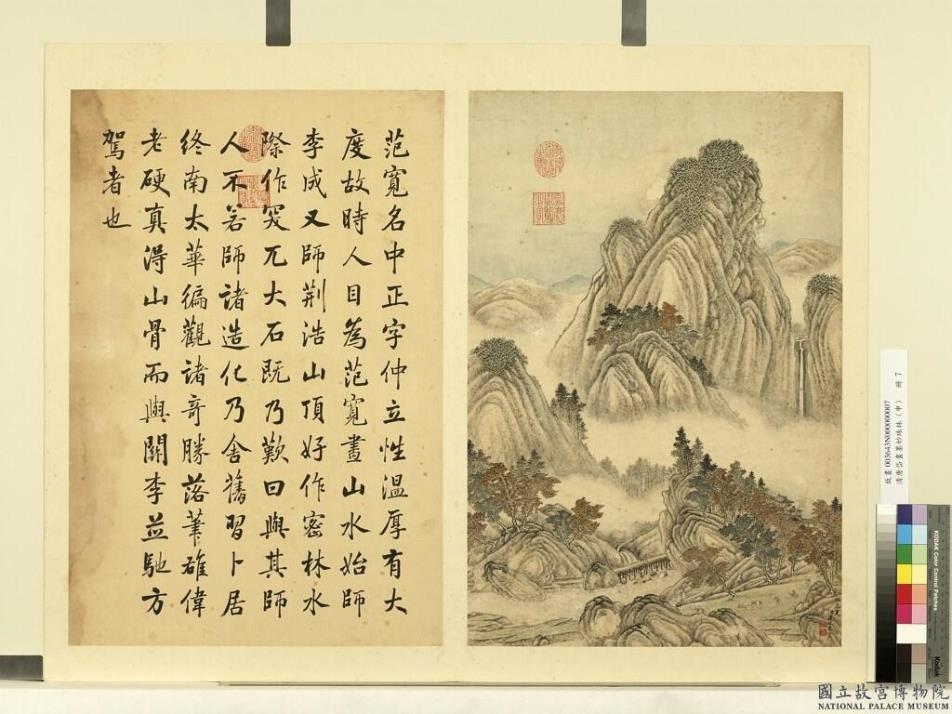 范寬名中正字仲立性溫厚有大
度故時人目為范寬畫山水始師
李成又師荆浩山頂好作密林水
際作突兀大石既乃歎曰與其師
人不若師諸造化乃舍舊習卜居
終南太華徧觀諸奇勝落筆雄偉
老硬真得山骨而與關李並馳方
駕者也
故畫 003643N000000007
清唐岱畫墨妙珠林（申） 冊 7
KODAK Color Control Patches
Kodak
國立故宮博物院
NATIONAL PALACE MUSEUM